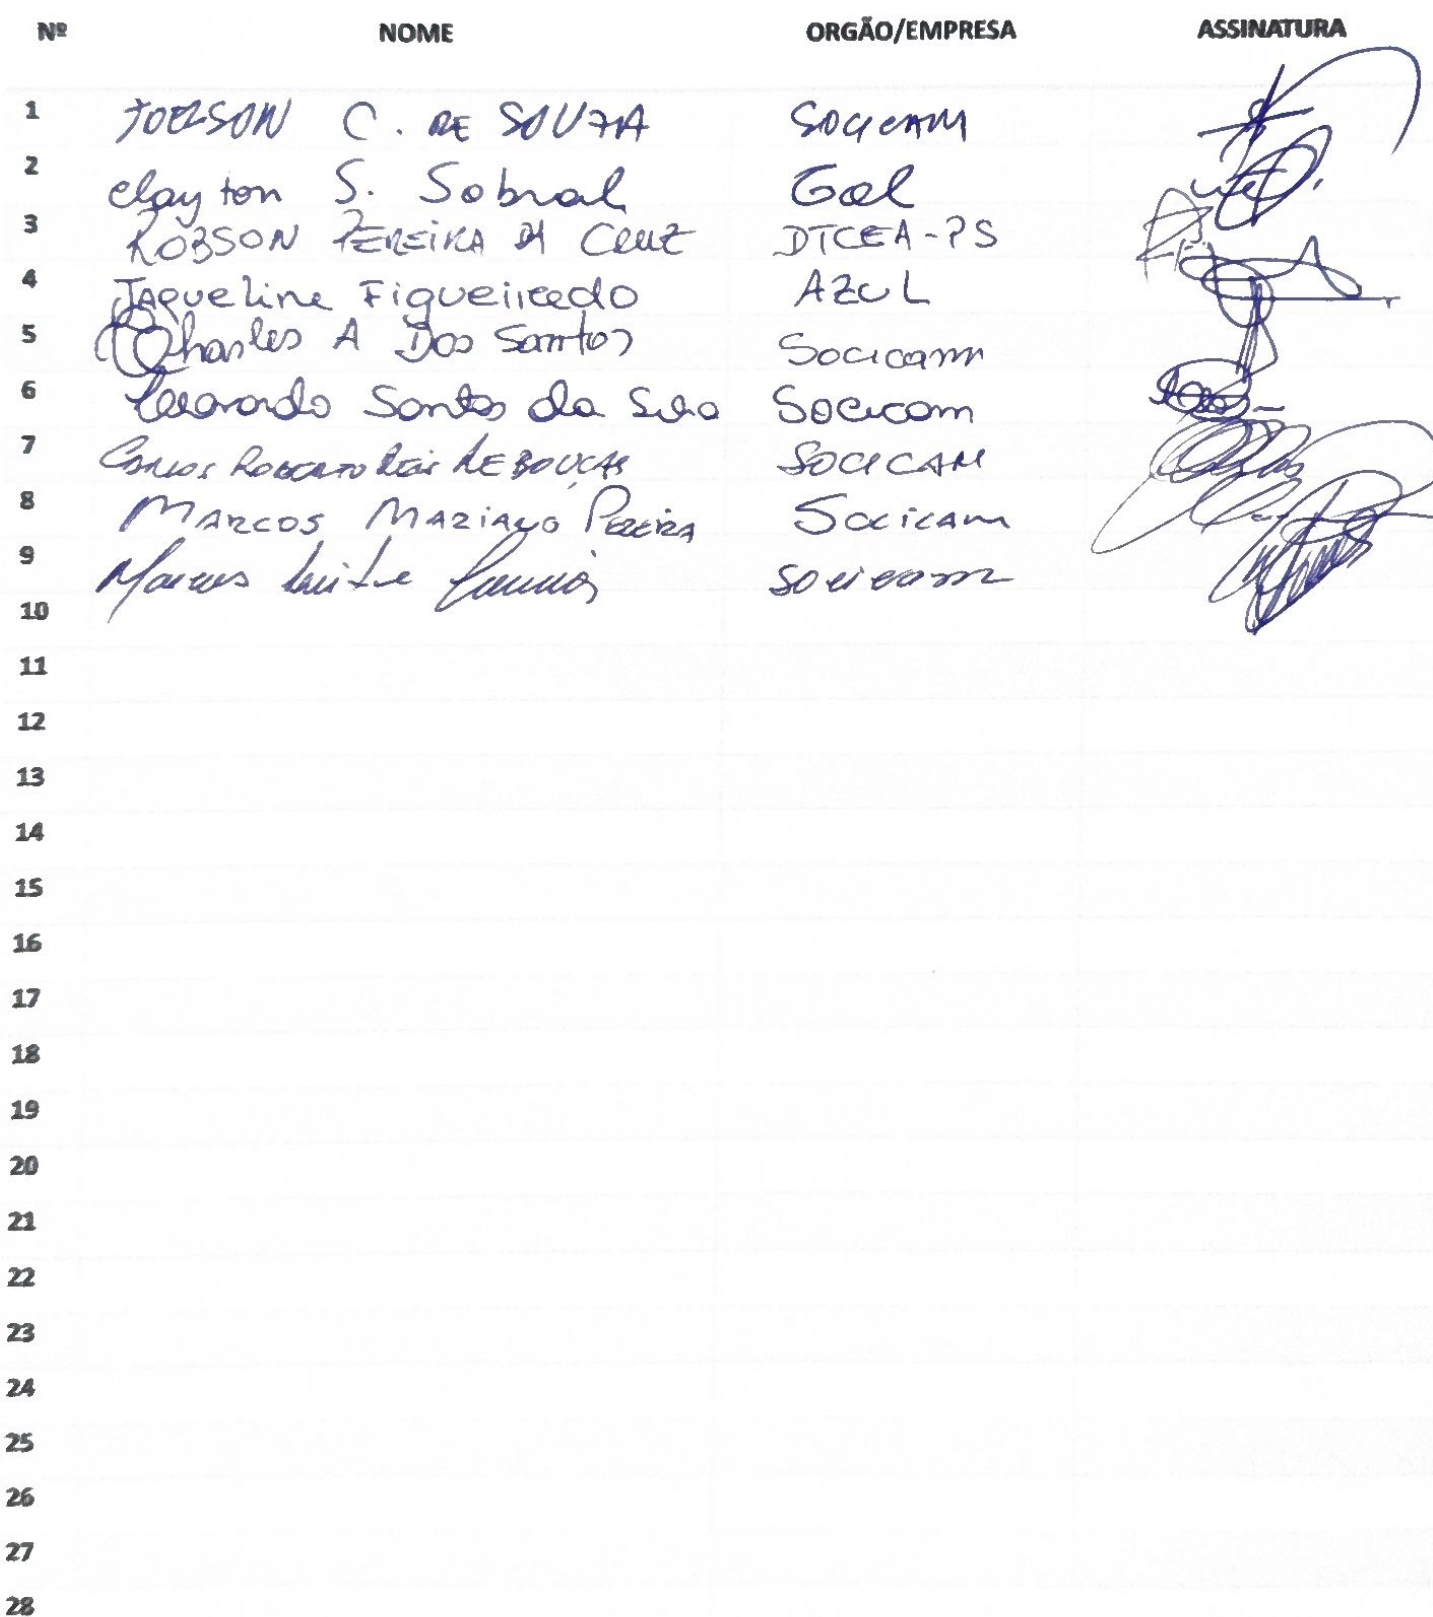 Nº NOME ORGÃO/EMPRESA ASSINATURA
1 JOELSON C. DE SOUZA SOCICAM
2 Clayton S. Sobral Gol
3 ROBSON PEREIRA DA CRUZ DTCEA-PS
4 JAqueline Figueiredo AZUL
5 Charles A Dos Santos Socicam
6 Leonardo Santos da Silva Socicam
7 CARLOS ROBERTO REIS REBOUÇAS SOCICAM
8 MARCOS MAZIANO PEREIRA Socicam
9 Marcos Socicam
10
11
12
13
14
15
16
17
18
19
20
21
22
23
24
25
26
27
28